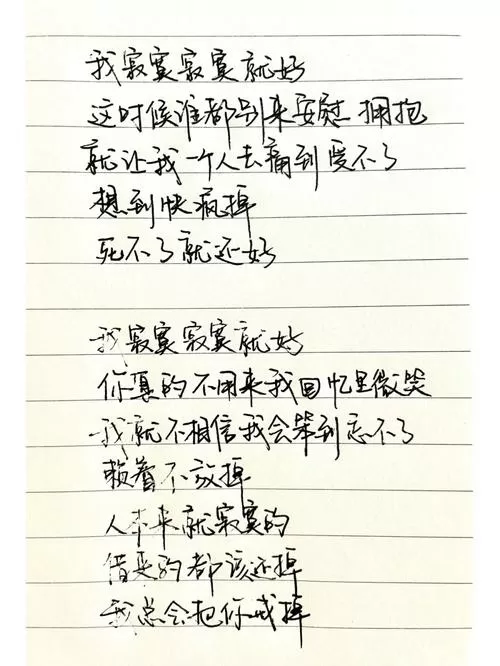 我寂寞寂寞就好
这时候谁都别来安慰 拥抱
就让我一个人去痛到受不了
想到快疯掉
死不了就还好
我寂寞寂寞就好
你真的不用来我回忆里微笑
我就不相信我会笨到忘不了
赖着不放掉
人本来就寂寞的
借来的都该还掉
我总会把你戒掉